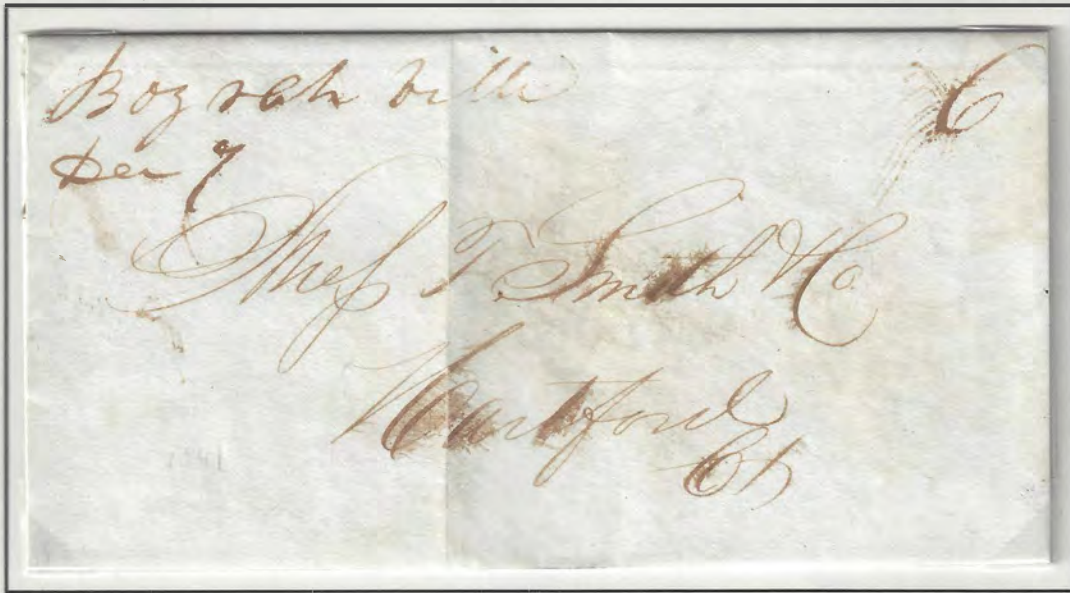 Bozrah ville
Dec 7
6
Mess T. Smith & Co
Hartford
Ct
1841